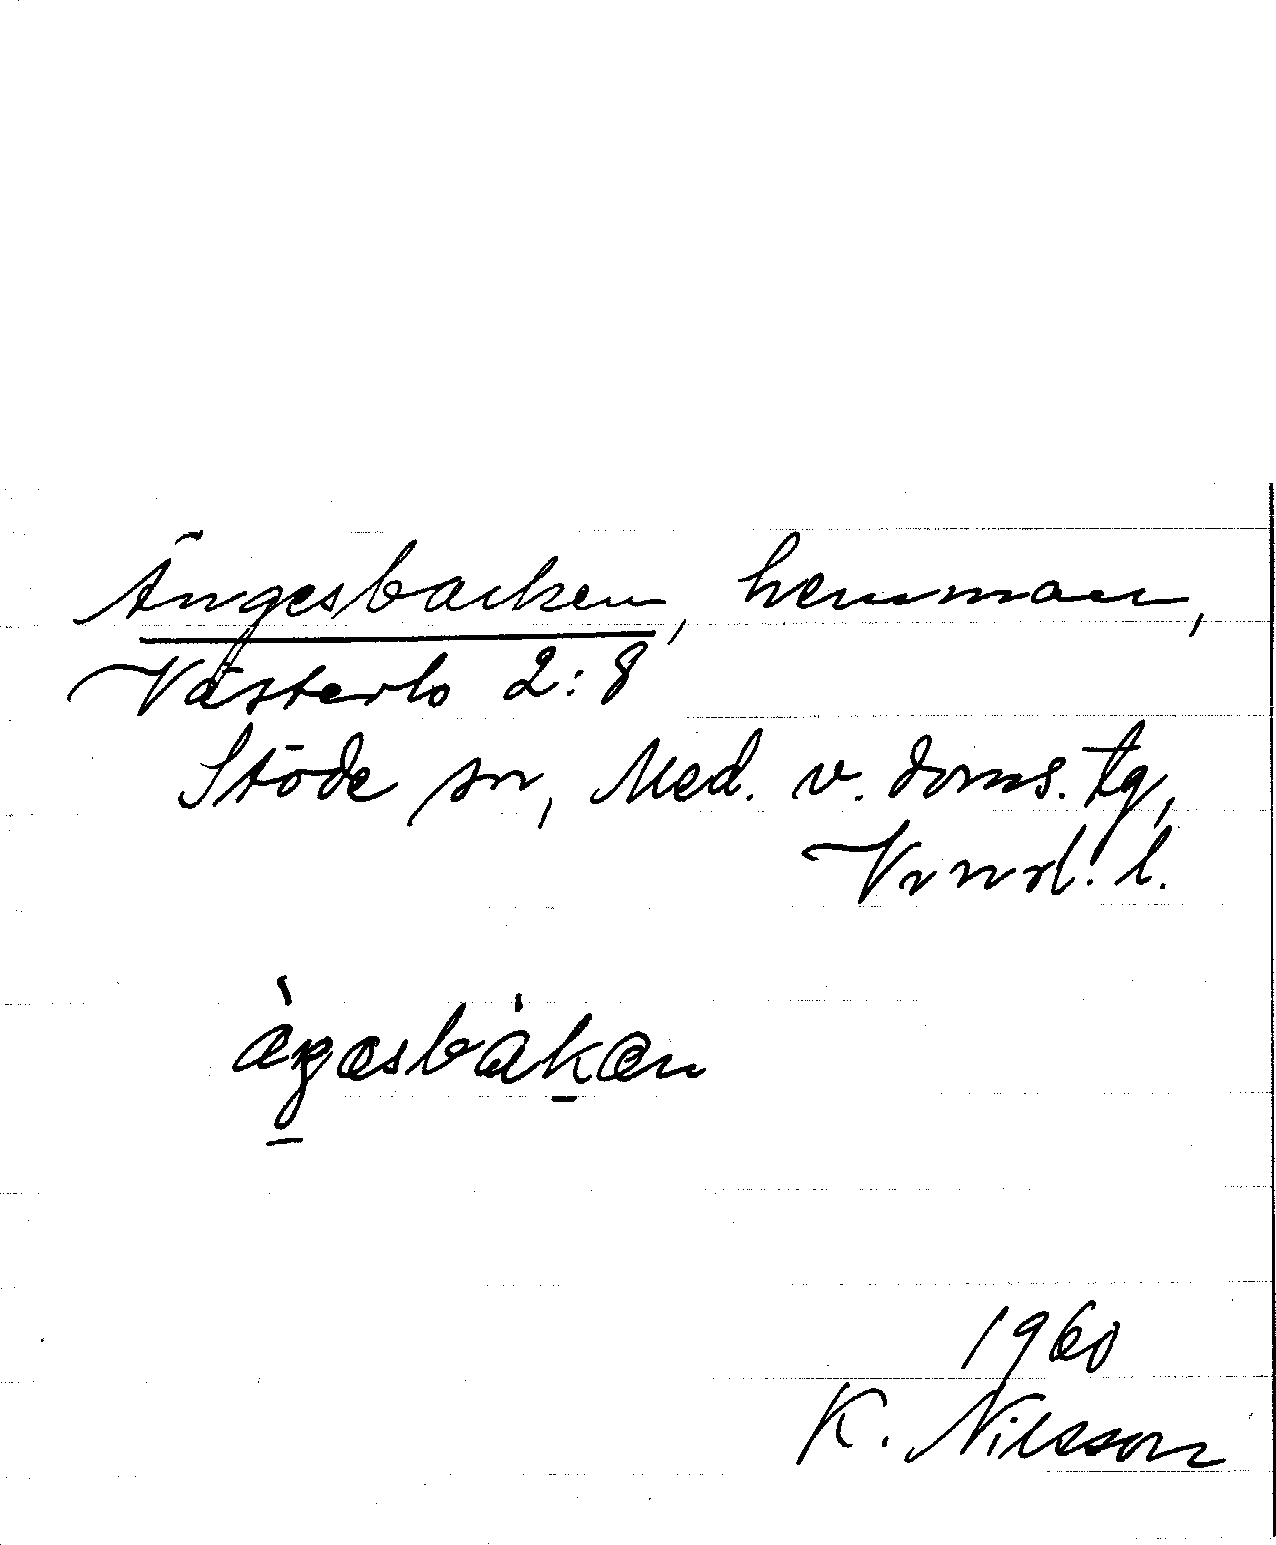 Ängesbacken, hemman,
Västerlo 2:8
Stöde sn, Med. v. doms. tg,
Vrnrl. l.
1960
K. Nilsson